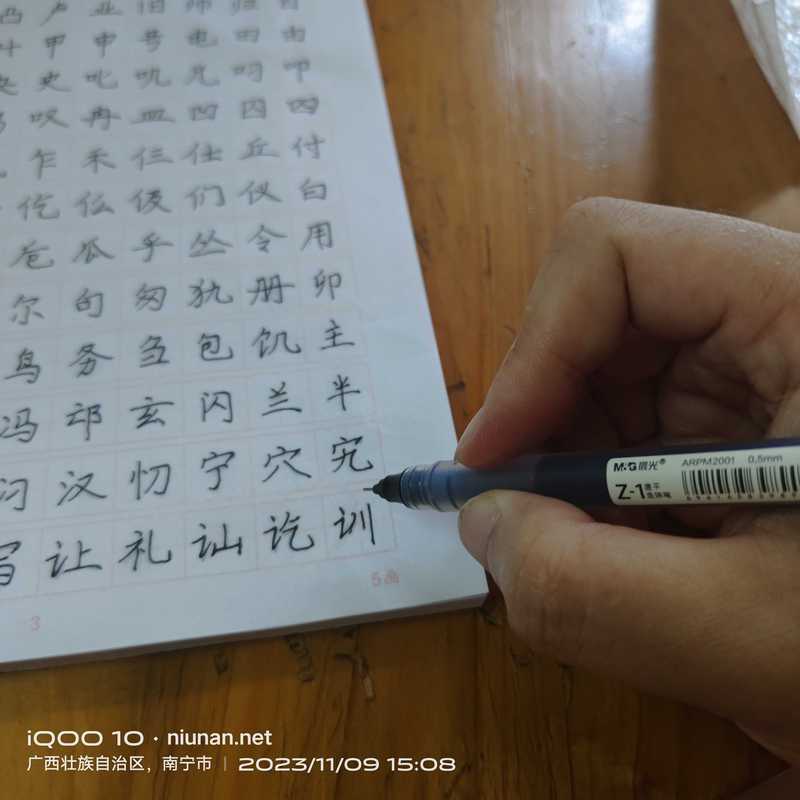 凸 卢 业 旧 帅 归 目
叶 甲 申 号 电 田 由
央 史 叱 叽 兄 叼 叩
叹 冉 皿 凹 囚 四
乍 禾 仨 仕 丘 付
仡 伝 们 仪 白
爸 瓜 乎 丛 令 用
尔 句 匆 犰 册 卯
鸟 务 刍 包 饥 主
冯 邙 玄 闪 兰 半
闪 汉 忉 宁 穴 宄
写 让 礼 讪 讫 训
3
5画
M&G晨光® ARPM2001 0.5mm
Z-1 速干 直珠笔
iQOO 10 · niunan.net
广西壮族自治区，南宁市 | 2023/11/09 15:08